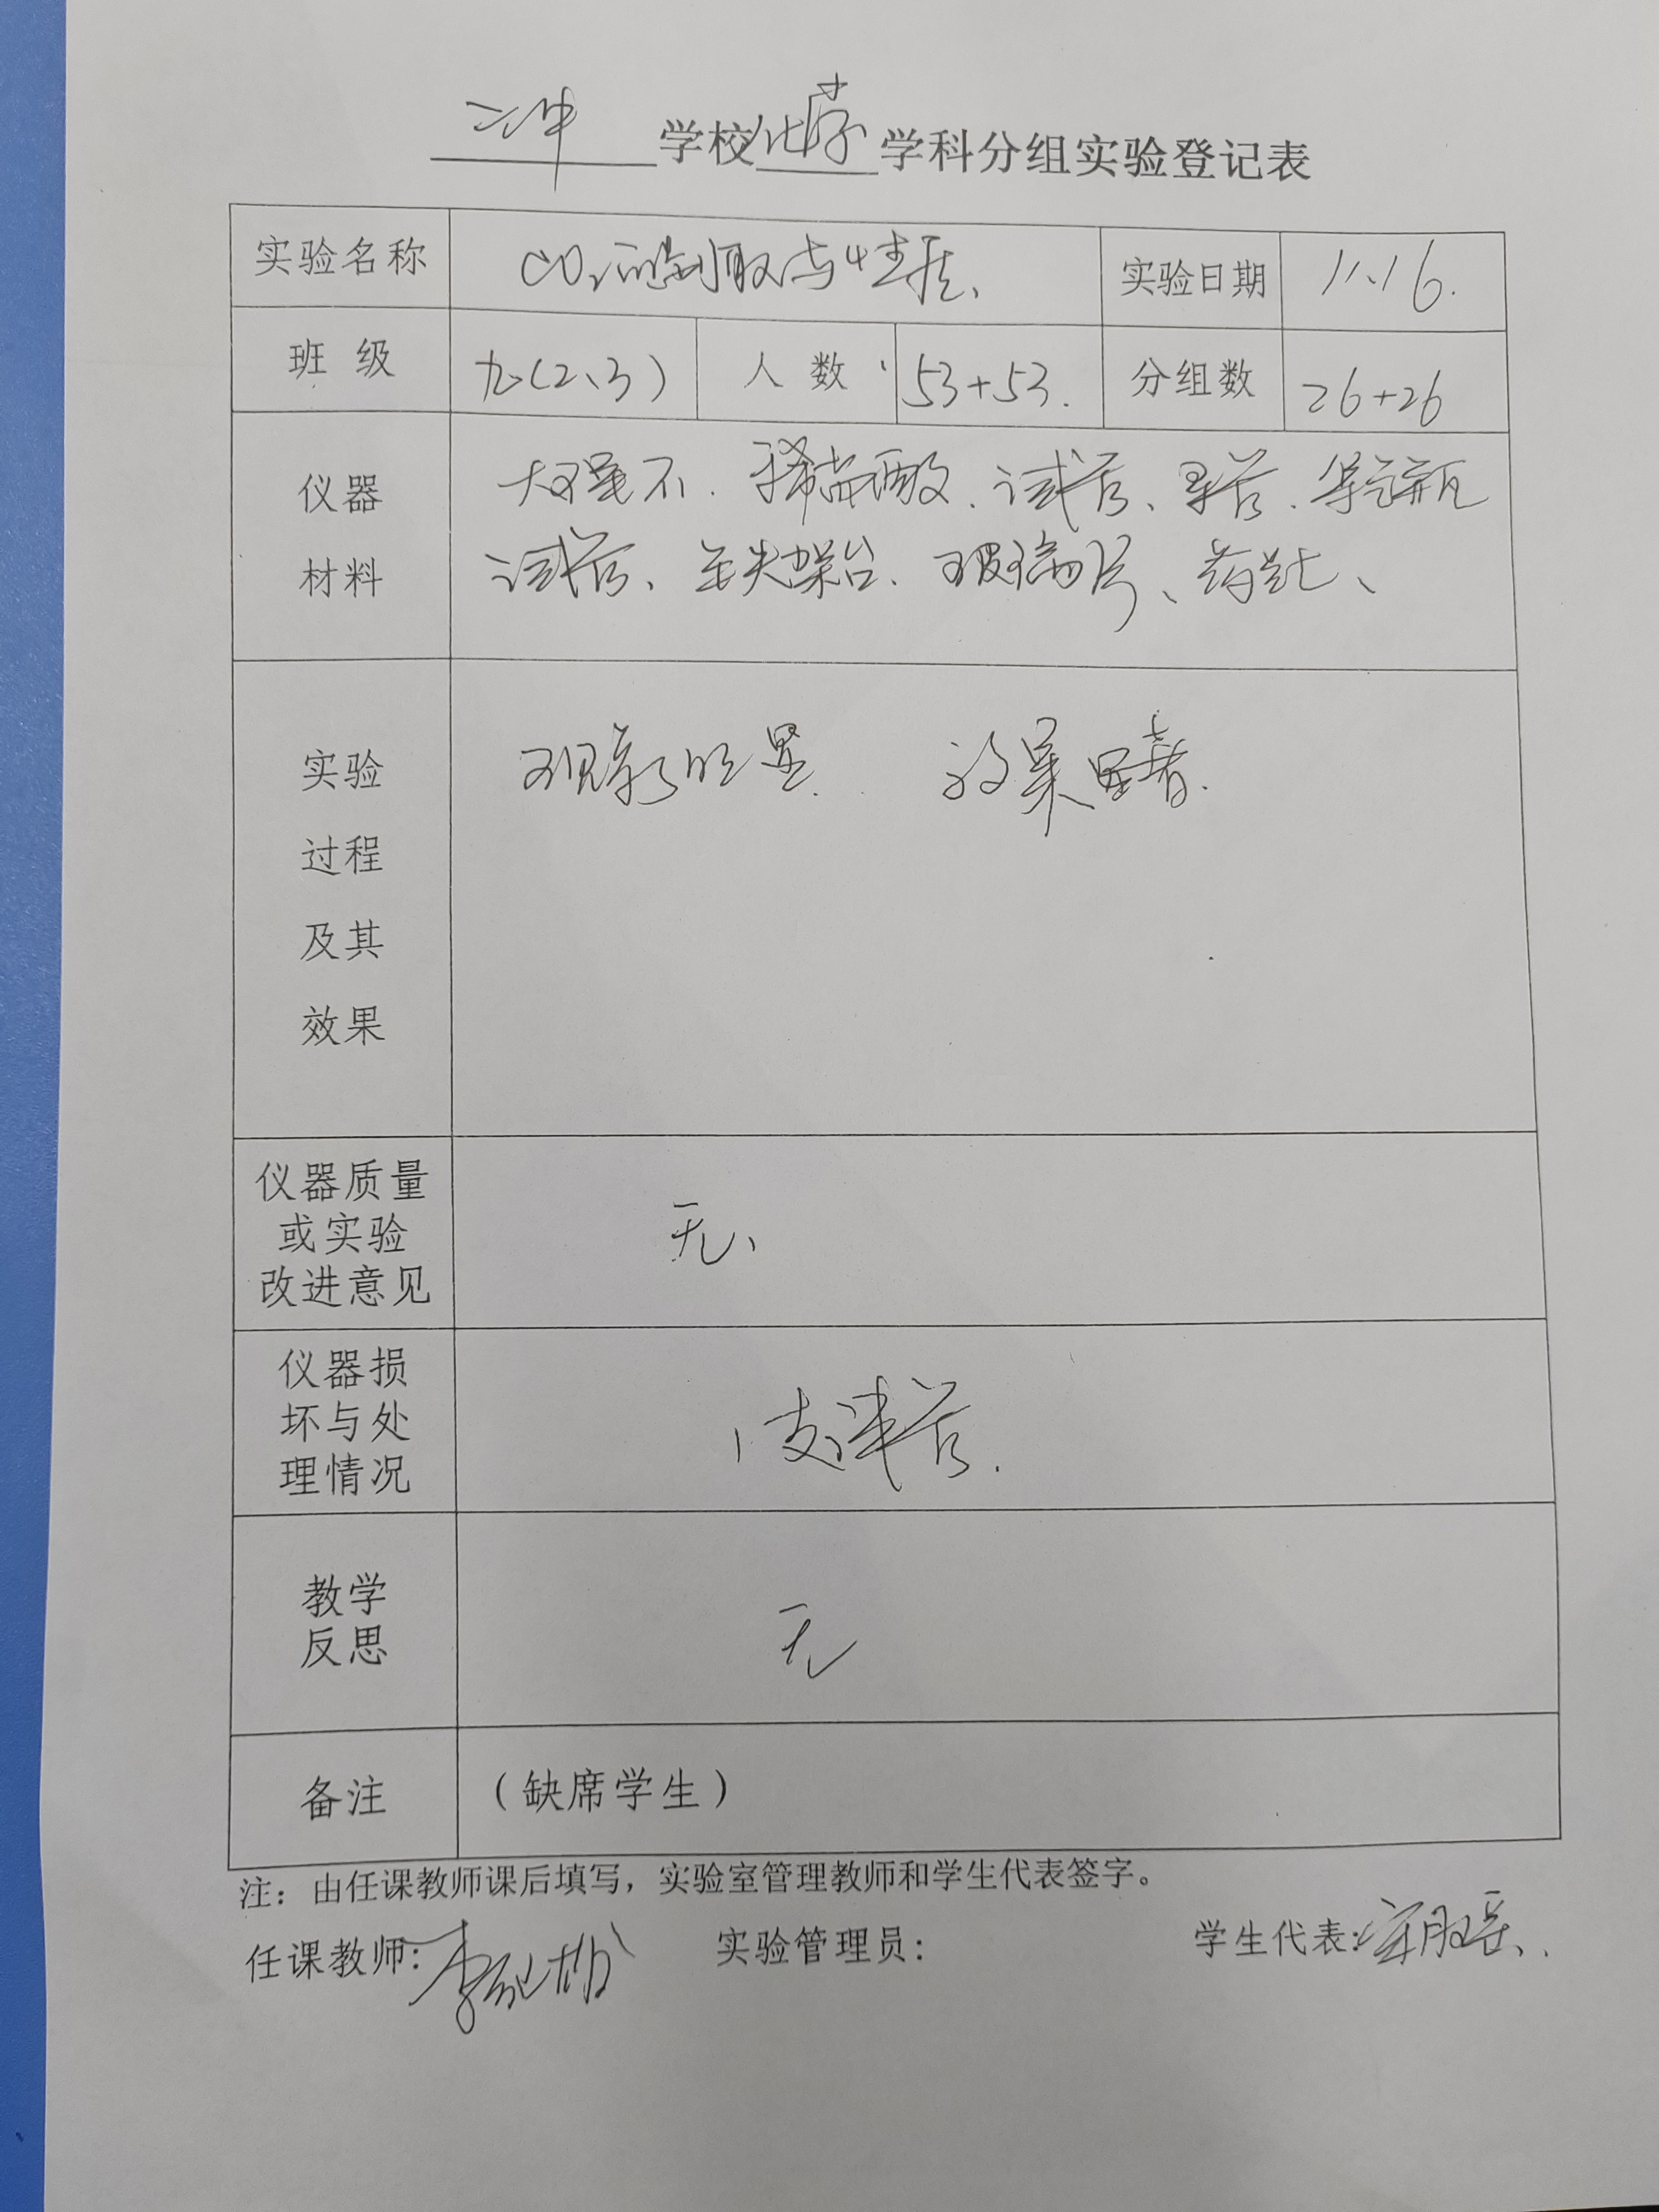 二中 学校 化学 学科分组实验登记表
实验名称 CO₂的制取与性质、 实验日期 11.16.
班 级 九(2、3) 人 数 53+53. 分组数 26+26
仪器材料 大理石. 稀盐酸. 试管、导管.
试管、铁架台. 玻璃片、药匙、
实验过程及其效果 现象明显. 效果显著.
仪器质量或实验改进意见 无、
仪器损坏与处理情况 1支试管.
教学反思 无
备注 (缺席学生)
注：由任课教师课后填写，实验室管理教师和学生代表签字。
任课教师: 实验管理员: 学生代表: